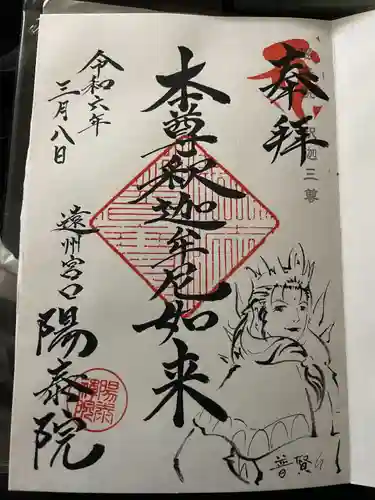 奉拝
釈迦三尊
本尊釈迦牟尼如来
令和六年
三月八日
遠州宮口
陽泰院
普賢